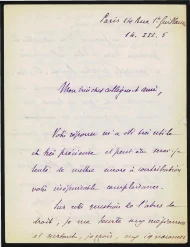 Paris 24 Rue St Guillaume
14. XII. 5
Mon très cher collègue et ami,
Votre réponse m'a été très utile
et très précieuse et peut-être serai-je
tenté de mettre encore à contribution
votre inépuisable complaisance.
Sur cette question de l'abus du
droit, je me heurte à
et surtout, je crois, aux ignorances